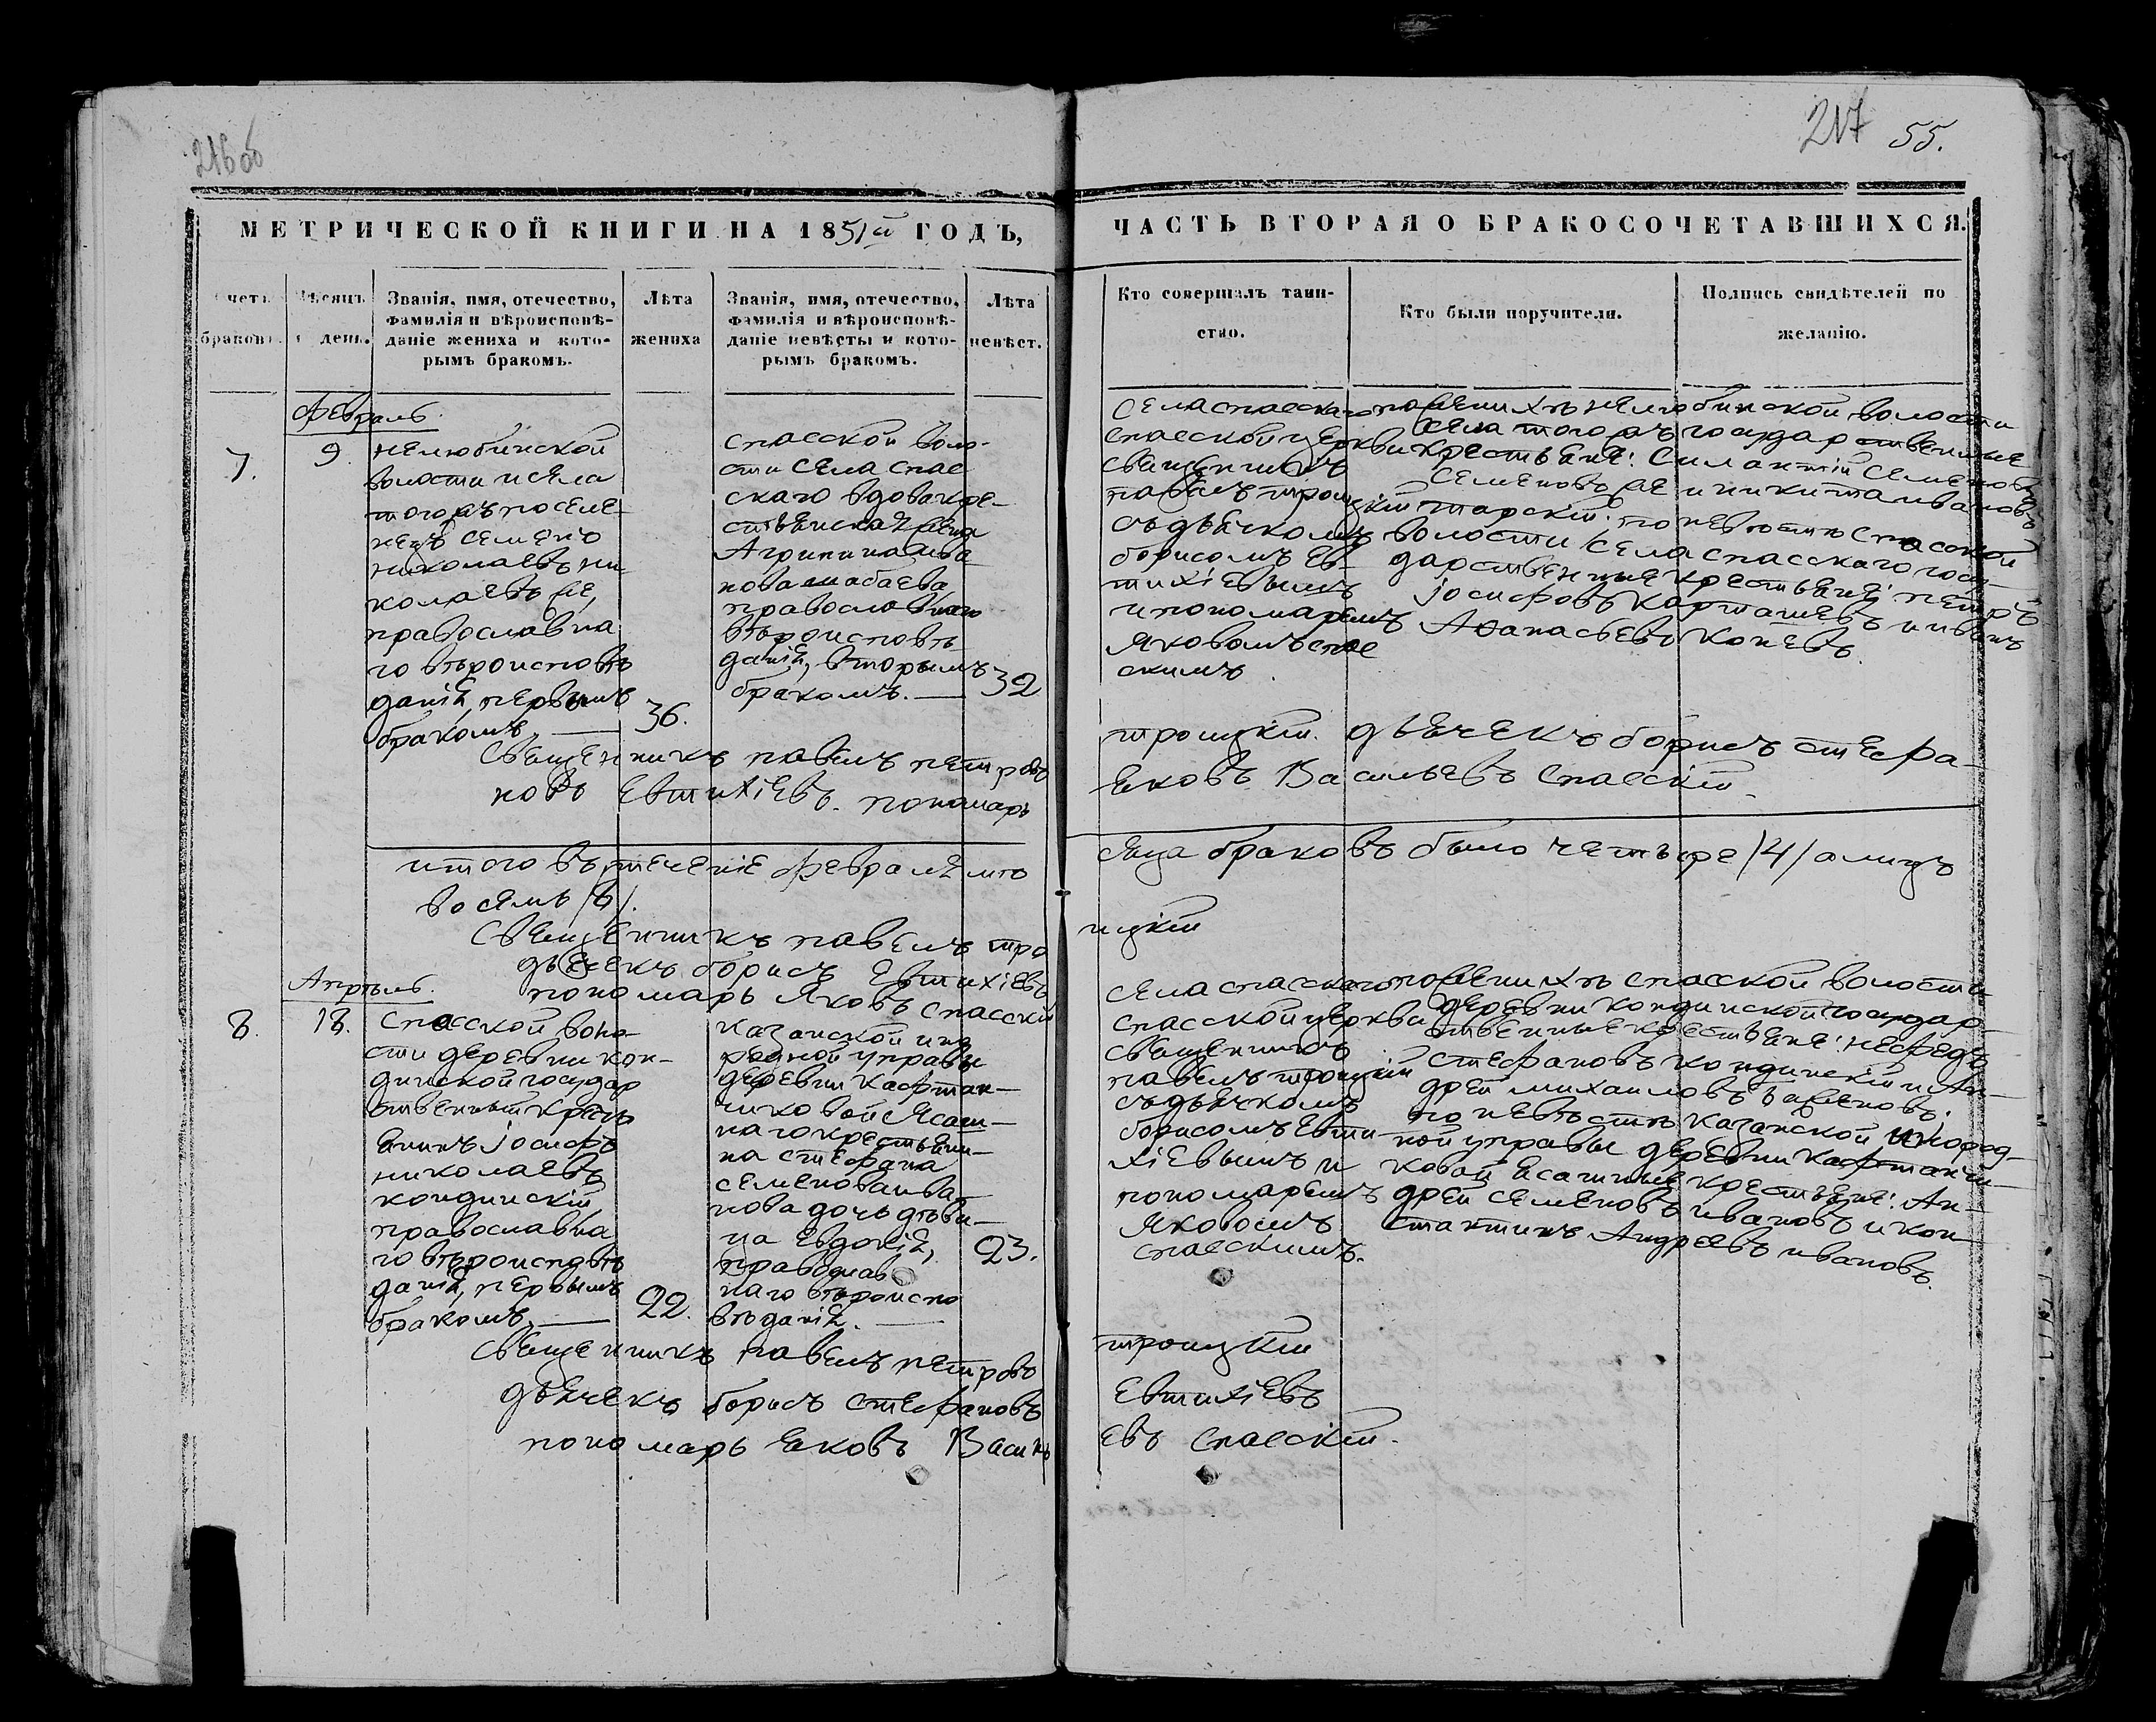 216об
217 55.
МЕТРИЧЕСКОЙ КНИГИ НА 1851й ГОДЪ,
ЧАСТЬ ВТОРАЯ О БРАКОСОЧЕТАВШИХСЯ.
Счетъ браковъ.
Мѣсяцъ и день.
Званія, имя, отечество,
фамилія и вѣроисповѣ-
даніе жениха и кото-
рымъ бракомъ.
Лѣта
жениха
Званія, имя, отечество,
фамилія и вѣроисповѣ-
даніе невѣсты и кото-
рымъ бракомъ.
Лѣта
невѣст.
Кто совершалъ таин-
ство.
Кто были поручители.
Подпись свидѣтелей по
желанію.
Февраль.
7.
9.
нелюбинской
волости и села
тогожъ поселе-
нецъ Семенъ
николаевъ ни-
колаевъ же,
православна
го вѣроисповѣ
данія, первымъ
бракомъ.
36.
спасской воло-
сти села спас
скаго вдова кре-
стьянская жена
Агрипина
нова
православнаго
вѣроисповѣ
данія, вторымъ
бракомъ.
32
села спасскаго
спасской церкви
священникъ
павелъ троицкій
съ дьячкомъ
борисомъ Ев-
тихіевымъ
и пономаремъ
Яковомъ спас
скимъ.
по женихѣ нелюбинской волости
села тогожъ государственные
крестьяне: Силантій Семеновъ
Семеновъ же и никита ивановъ
тарскій. по невѣстѣ спасской
волости села спасскаго госу-
дарственные крестьяне: петръ
іосифовъ Карташевъ и иванъ
Афанасьевъ Коневъ.
Священникъ павелъ петровъ
троицкій. дьячекъ борисъ стефа-
новъ Евтихіевъ. пономарь
Яковъ Васильевъ Спасскій.
итого въ теченіе февраля мѣ
сяца браковъ было четыре /4/ а лицъ
восемь /8/.
Священникъ павелъ тро
ицкій
дьячекъ борисъ Евтихіевъ
пономарь Яковъ спасскій
Апрѣль.
8.
18.
спасской воло-
сти деревни кон-
динской государ
ственный кресть
янинъ іосифъ
николаевъ
кондинскій
православна
го вѣроисповѣ
данія, первымъ
бракомъ.
22.
казанской ино
родной управы
деревни Кафтан-
чиковой Ясаш-
наго крестьяни-
на стефана
семенова ива-
нова дочь дѣви-
ца Евдокія,
православ
наго вѣроиспо
вѣданія.
23.
села спасскаго
спасской церкви
священникъ
павелъ троицкій
съ дьячкомъ
борисомъ Евти-
хіевымъ и
пономаремъ
Яковомъ
спасскимъ.
по женихѣ спасской волости
деревни кондинской государ-
ственные крестьяне: нефедъ
стефановъ кондинскій и Ан-
дрей михаиловъ
по невѣстѣ казанской инород-
ной управы деревни Кафтанчи-
ковой Ясашные крестьяне: Ан-
дрей семеновъ ивановъ и кон-
стантинъ Андреевъ ивановъ.
Священникъ павелъ петровъ
троицкій
дьячекъ борисъ стефановъ
Евтихіевъ
пономарь Яковъ Василь
евъ спасскій.